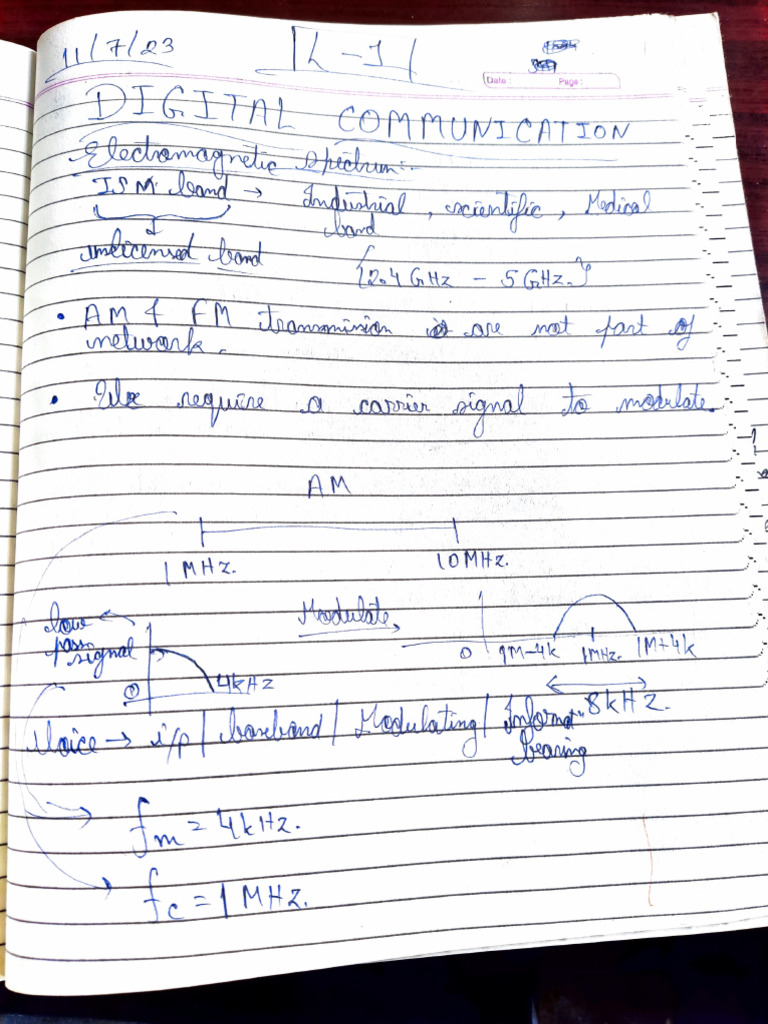 11/7/23
L-1
Date : Page :
DIGITAL COMMUNICATION
Electromagnetic spectrum:-
ISM band → Industrial, scientific, Medical band
unlicensed band
{2.4 GHz - 5 GHz.}
• AM & FM transmission are not part of
network.
• We require a carrier signal to modulate.
AM
1 MHz. 10 MHz.
low pass signal
0 4kHz
Modulate
0 1M-4k 1MHz. 1M+4k
8kHz.
Voice → i/p / baseband / Modulating / Informatn bearing
fm = 4kHz.
fc = 1 MHz.